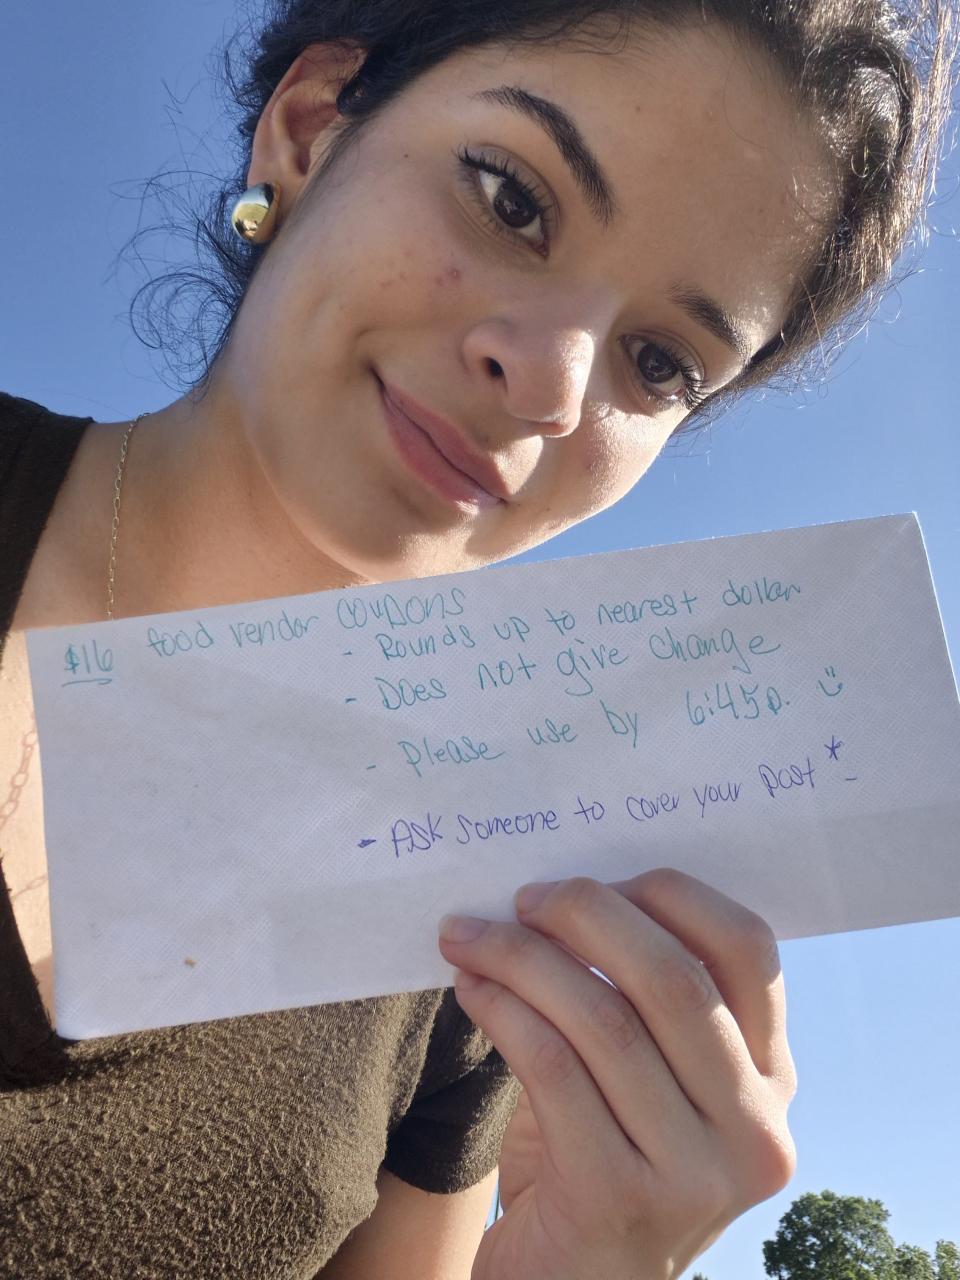 $16 food vendor coupons
- Rounds up to nearest dollar
- Does not give change
- Please use by 6:45p. :)
- Ask someone to cover your post *